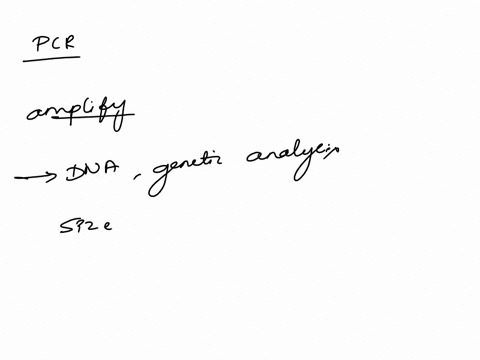 PCR
amplify
→ DNA, genetic analysis
size